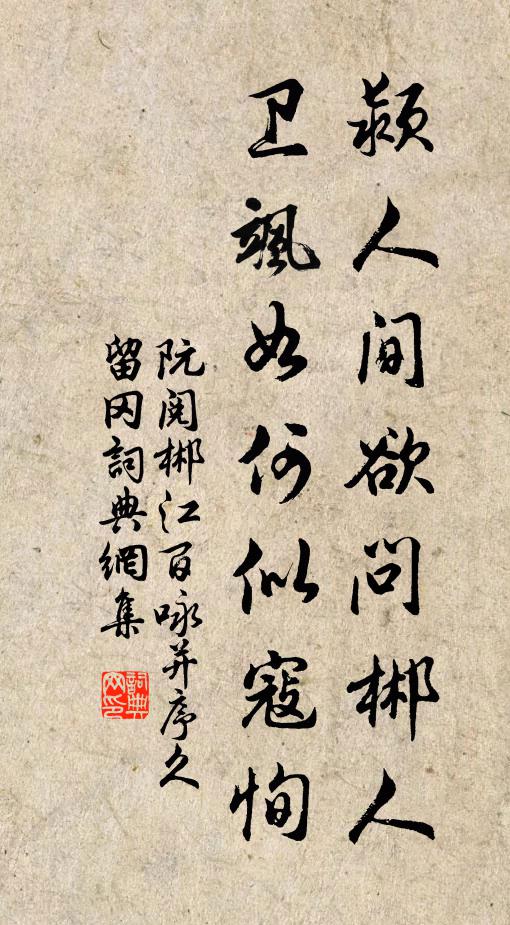 颍人闻欲问郴人
卫飒如何似寇恂
阮阅郴江百咏并序久
留冈词典网集
词典网印